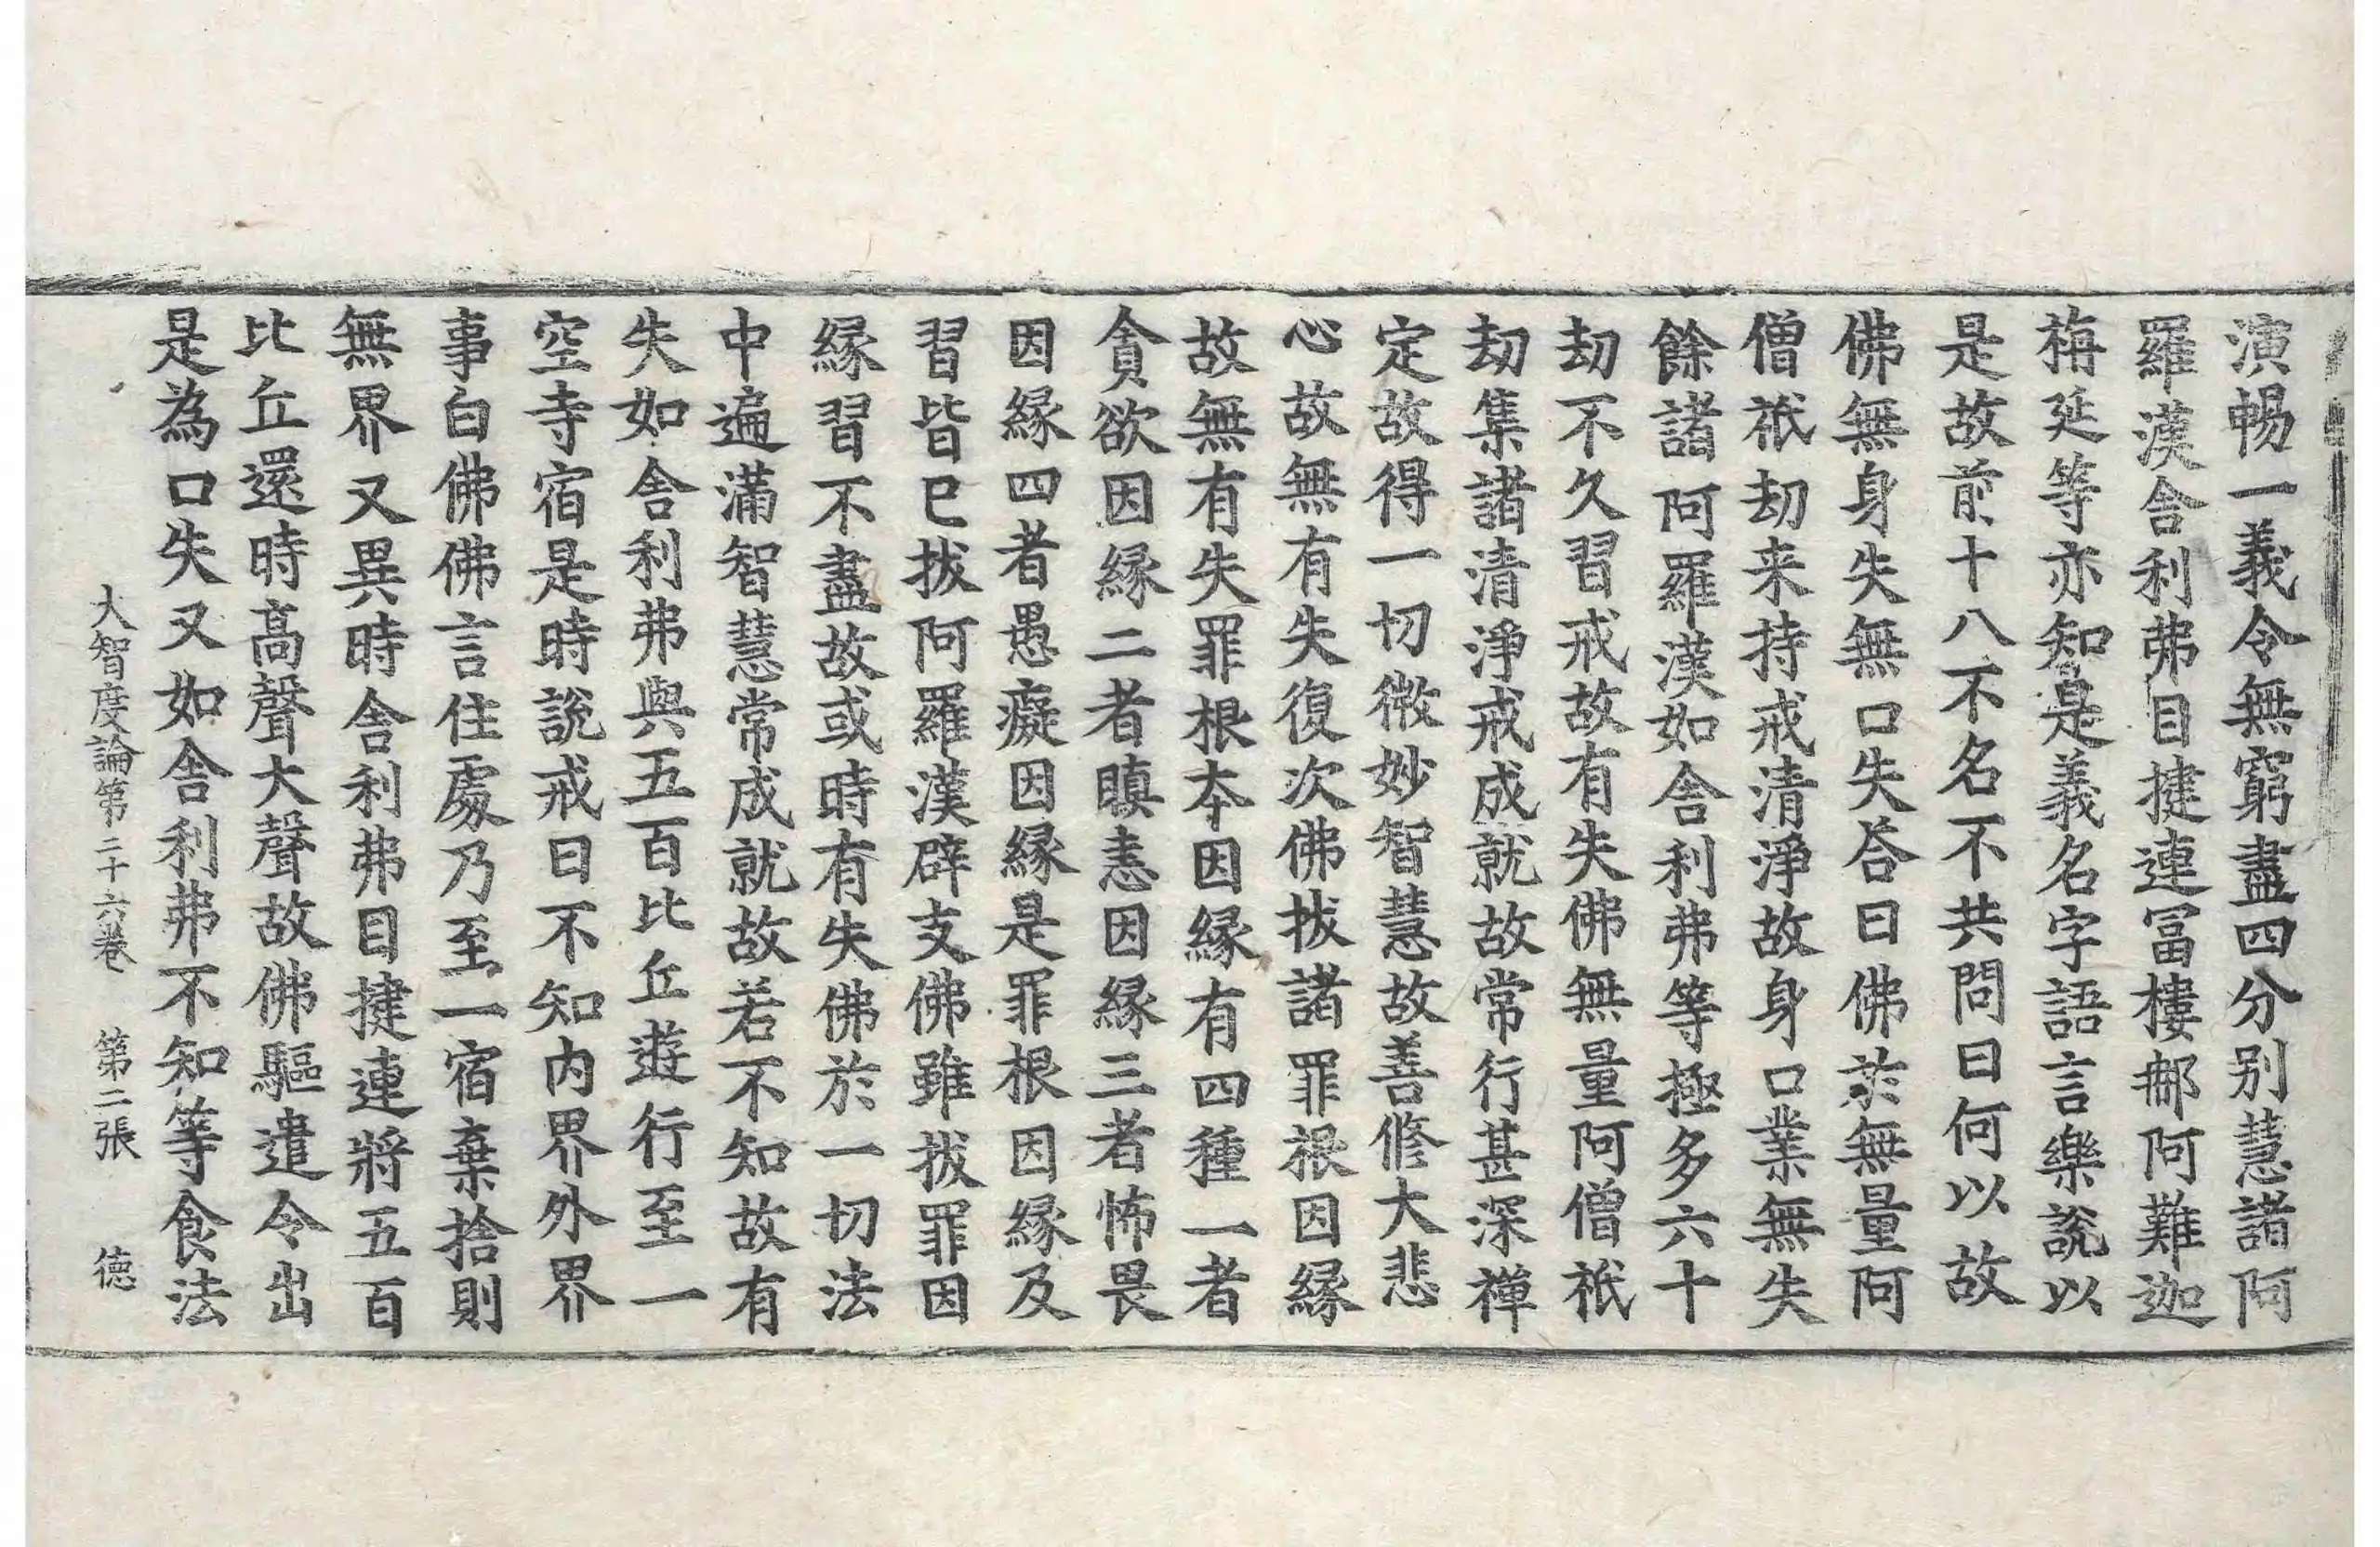 演暢一義令無窮盡四分別慧諸阿
羅漢舍利弗目揵連冨樓那阿難迦
栴延等亦知是義名字語言樂説以
是故前十八不名不共問曰何以故
佛無身失無口失荅曰佛於無量阿
僧祇劫来持戒清淨故身口業無失
餘諸阿羅漢如舍利弗等極多六十
劫不久習戒故有失佛無量阿僧祇
劫集諸清淨戒成就故常行甚深禪
定故得一切微妙智慧故善修大悲
心故無有失復次佛拔諸罪根因縁
故無有失罪根夲因縁有四種一者
貪欲因縁二者瞋恚因縁三者怖畏
因縁四者愚癡因縁是罪根因縁及
習皆已拔阿羅漢辟支佛雖拔罪因
縁習不盡故或時有失佛於一切法
中遍滿智慧常成就故若不知故有
失如舍利弗與五百比丘遊行至一
空寺宿是時説戒日不知内界外界
事白佛佛言住處乃至一宿棄捨則
無界又異時舍利弗目揵連將五百
比丘還時髙聲大聲故佛驅遣令出
是為口失又如舍利弗不知等食法
大智度論第二十六卷 第二張 徳